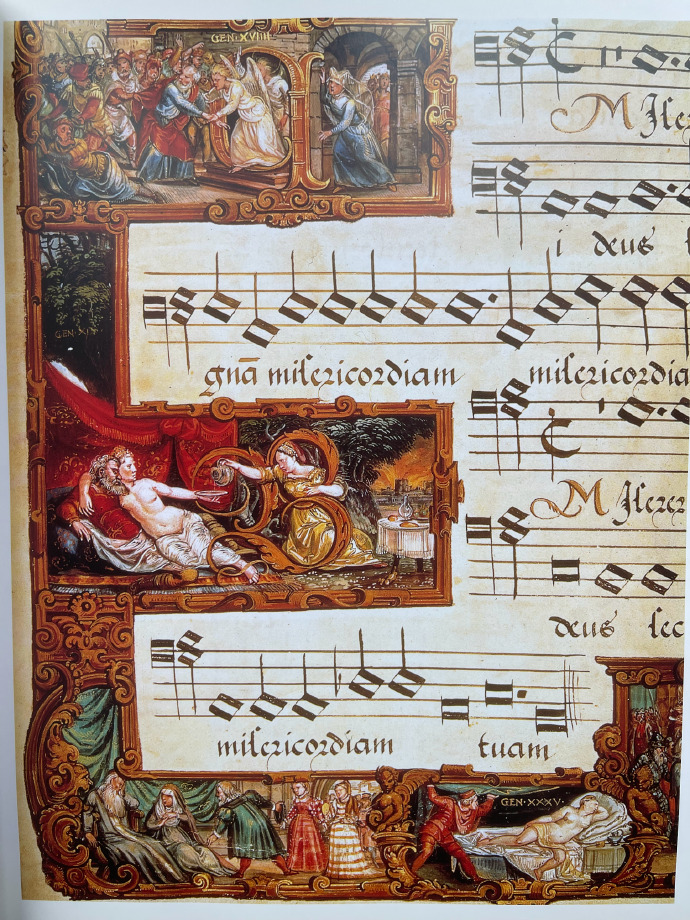 GEN·XVIIII·
MIſere
i deus
GEN·XIX
gnā miſericordiam miſericordia
MIſerer
deus ſec
miſericordiam tuam
GEN·XXXV·